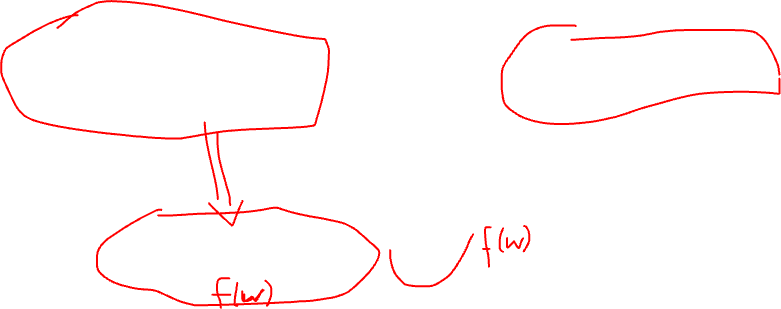 f(w)
f(w)